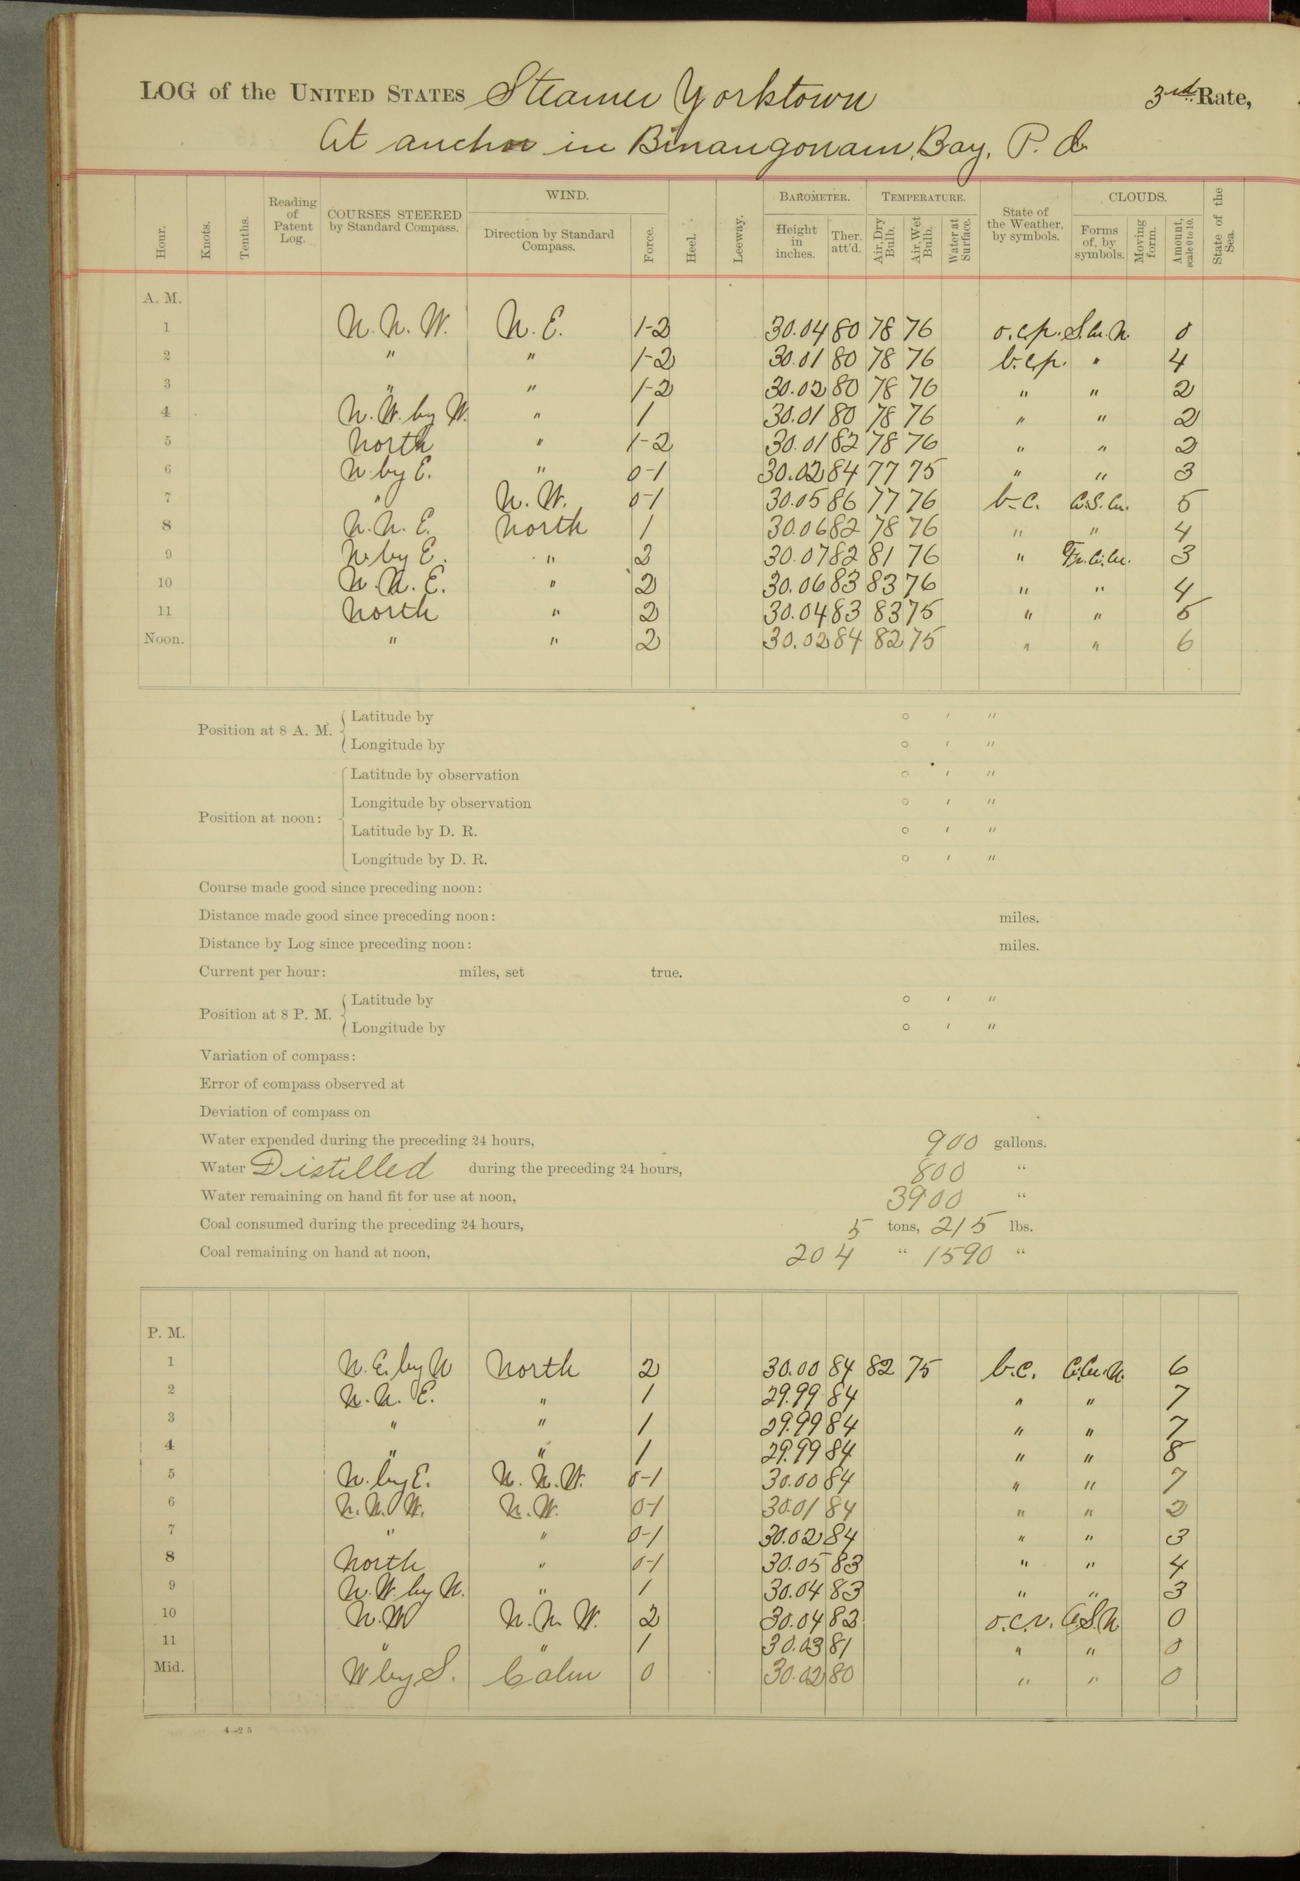 LOG of the UNITED STATES Steamer Yorktown 3rd Rate,
At anchor in Binangonan, Bay, P. I.
Hour. Knots. Tenths. Reading of Patent Log. COURSES STEERED by Standard Compass. WIND. Direction by Standard Compass. Force. Heel. Leeway. BAROMETER. Height in inches. Ther. att'd. TEMPERATURE. Air, Dry Bulb. Air, Wet Bulb. Water at Surface. State of the Weather, by symbols. CLOUDS. Forms of, by symbols. Moving form. Amount, scale 0 to 10. State of the Sea.
A. M.
1 N. N. W. N. E. 1-2 30.04 80 78 76 o.c.p. S.Cu.N. 0
2 " " 1-2 30.01 80 78 76 b.c.p. " 4
3 " " 1-2 30.02 80 78 76 " " 2
4 N. W. by W. " 1 30.01 80 78 76 " " 2
5 North " 1-2 30.01 82 78 76 " " 2
6 N. by E. " 0-1 30.02 84 77 75 " " 3
7 " N. W. 0-1 30.05 86 77 76 b.c. C.S.Cu. 5
8 N. N. E. North 1 30.06 82 78 76 " " 4
9 N. by E. " 2 30.07 82 81 76 " Fr.C.Cu. 3
10 N. N. E. " 2 30.06 83 83 76 " " 4
11 North " 2 30.04 83 83 75 " " 5
Noon. " " 2 30.02 84 82 75 " " 6
Position at 8 A. M. Latitude by ° ' "
Longitude by ° ' "
Position at noon: Latitude by observation ° ' "
Longitude by observation ° ' "
Latitude by D. R. ° ' "
Longitude by D. R. ° ' "
Course made good since preceding noon:
Distance made good since preceding noon: miles.
Distance by Log since preceding noon: miles.
Current per hour: miles, set true.
Position at 8 P. M. Latitude by ° ' "
Longitude by ° ' "
Variation of compass:
Error of compass observed at
Deviation of compass on
Water expended during the preceding 24 hours, 900 gallons.
Water Distilled during the preceding 24 hours, 800 "
Water remaining on hand fit for use at noon, 3900 "
Coal consumed during the preceding 24 hours, 5 tons, 215 lbs.
Coal remaining on hand at noon, 204 " 1590 "
P. M.
1 N. E. by N North 2 30.00 84 82 75 b.c. C.Cu.N. 6
2 N. N. E. " 1 29.99 84 " " 7
3 " " 1 29.99 84 " " 7
4 " " 1 29.99 84 " " 8
5 N. by E. N. N. W. 0-1 30.00 84 " " 7
6 N. N. W. N. W. 0-1 30.01 84 " " 2
7 " " 0-1 30.02 84 " " 3
8 North " 0-1 30.05 83 " " 4
9 N. W. by N. " 1 30.04 83 " " 3
10 N. W N. N. W. 2 30.04 82 o.c.r. C.S.N. 0
11 " " 1 30.03 81 " " 0
Mid. W by S. Calm 0 30.02 80 " " 0
4--25